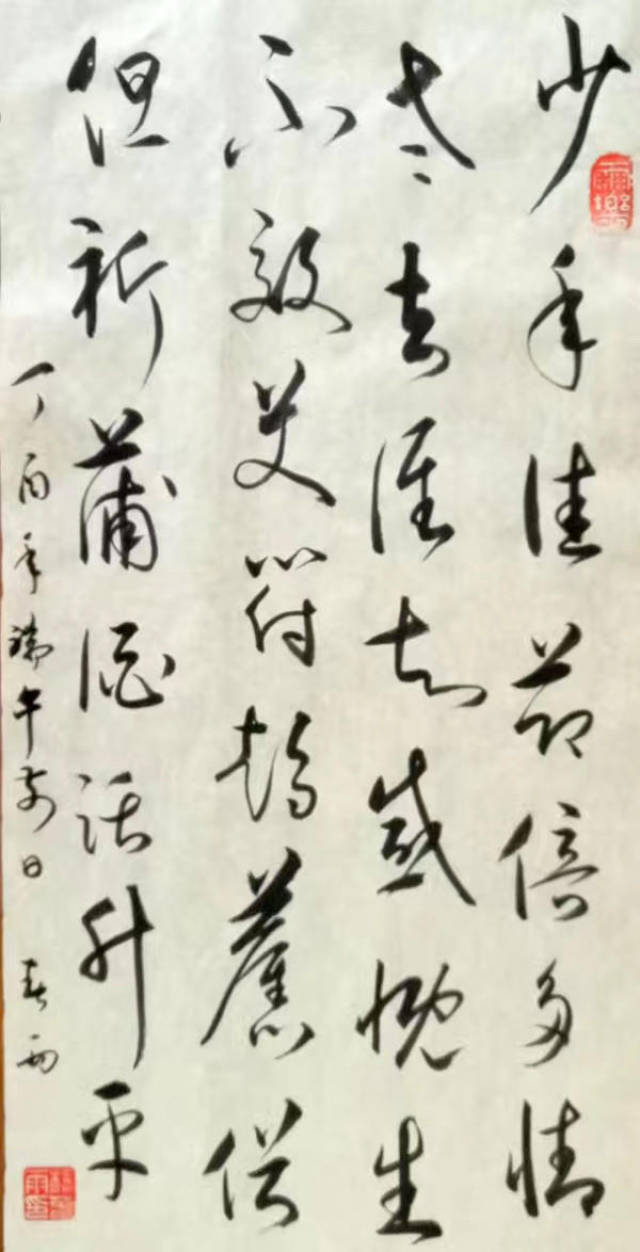 少年佳节倍多情
老去谁知感慨生
不效艾符趋舊俗
但祈蒲酒话升平
丁酉年端午前日 春雨